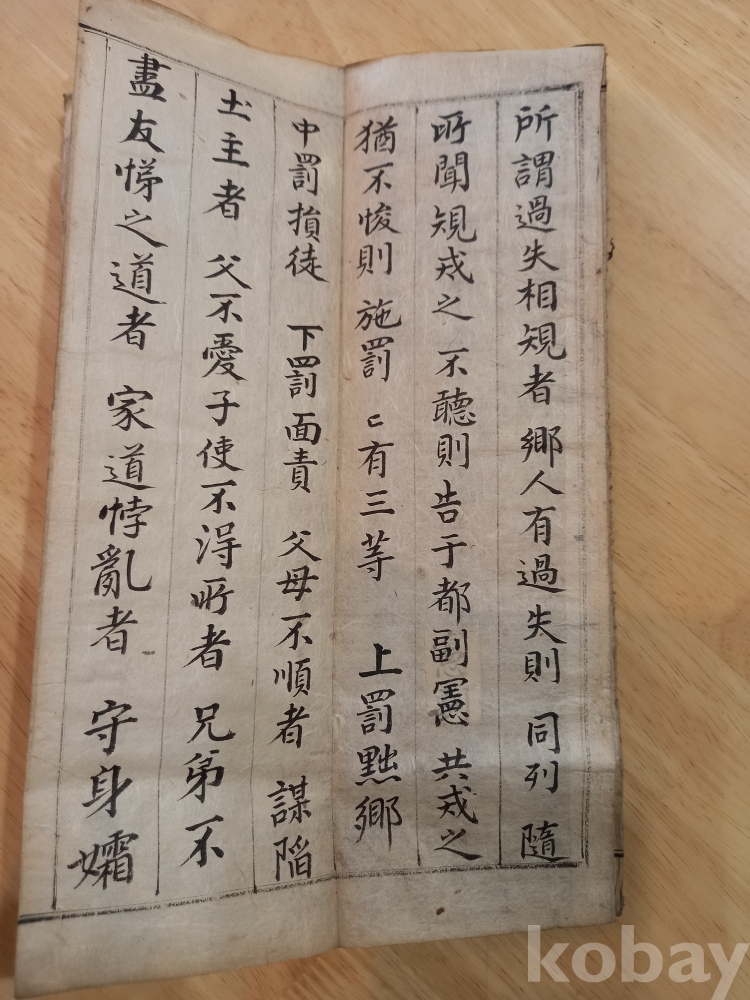 所謂過失相規者 鄉人有過失則 同列 隨
所聞規戒之 不聽則告于都副憲 共戒之
猶不悛則 施罰 亡有三等 上罰黜鄉
中罰損徒 下罰面責 父母不順者 謀陷
土主者 父不愛子使不得所者 兄弟不
盡友悌之道者 家道悖亂者 守身孀
kobay